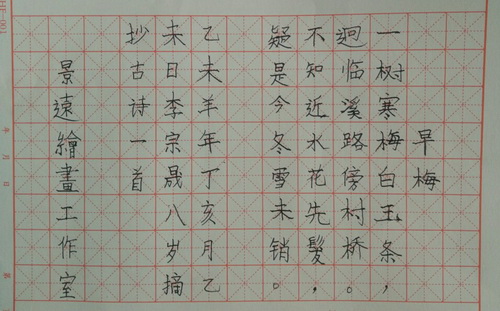 早梅
一树寒梅白玉条，
迥临溪路傍村桥。
不知近水花先髮，
疑是今冬雪未销。
乙未羊年丁亥月乙
未日李宗晟八岁摘
抄古诗一首
景遠繪畫工作室
年 月 日
第